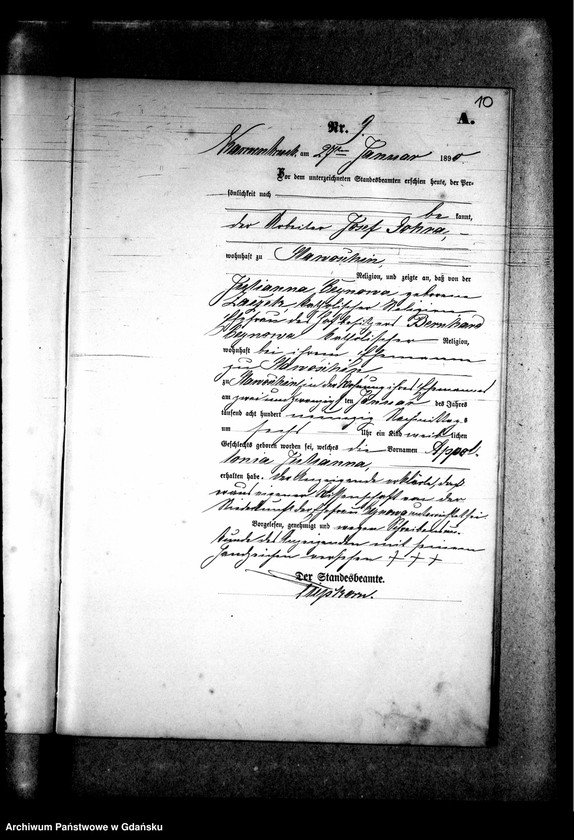 10
A.
Nr. 9.
am 27ten Januar 1890.
Vor dem unterzeichneten Standesbeamten erschien heute, der Per-
sönlichkeit nach
be kannt,
der Arbeiter Josef
wohnhaft zu
Religion, und zeigte an, daß von der
Justianna Ceynowa geborene
katholischer Religion
Ehefrau des Bernhard
Ceynowa katholischer Religion,
wohnhaft bei ihrem Ehemann
zu
zu in der Behausung ihres Ehemannes
am zweiundzwanzig ten Januar des Jahres
tausend acht hundert neunzig Nachmittags
um sechs Uhr ein Kind weib lichen
Geschlechts geboren worden sei, welches die Vornamen Appol-
lonia Justianna,
erhalten habe. Der Anzeigende erklärte, daß
er aus eigener Wissenschaft von der
Niederkunft der Ehefrau Ceynowa unterrichtet sei.
Vorgelesen, genehmigt und wegen Schreibensun-
kunde des Anzeigenden mit seinem
Handzeichen versehen + + +
Der Standesbeamte.
Archiwum Państwowe w Gdańsku